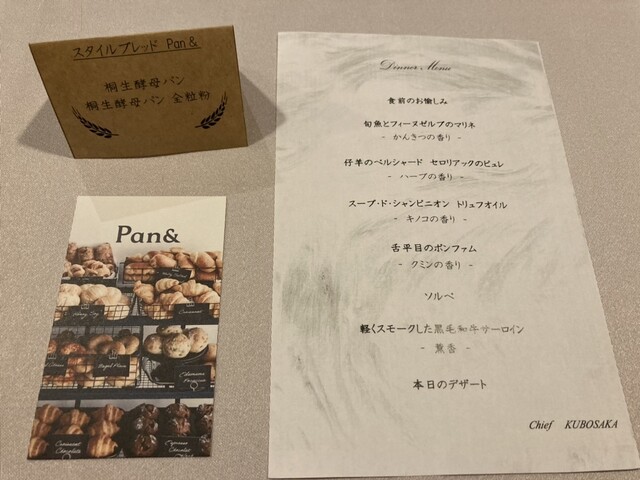 スタイルブレッド Pan&
桐生酵母パン
桐生酵母パン 全粒粉
Pan&
Dinner Menu
食前のお愉しみ
旬魚とフィーヌゼルブのマリネ
- かんきつの香り -
仔羊のペルシャード セロリアックのピュレ
- ハーブの香り -
スープ・ド・シャンピニオン トリュフオイル
- キノコの香り -
舌平目のボンファム
- クミンの香り -
ソルベ
軽くスモークした黒毛和牛サーロイン
- 薫香 -
本日のデザート
Chief KUBOSAKA